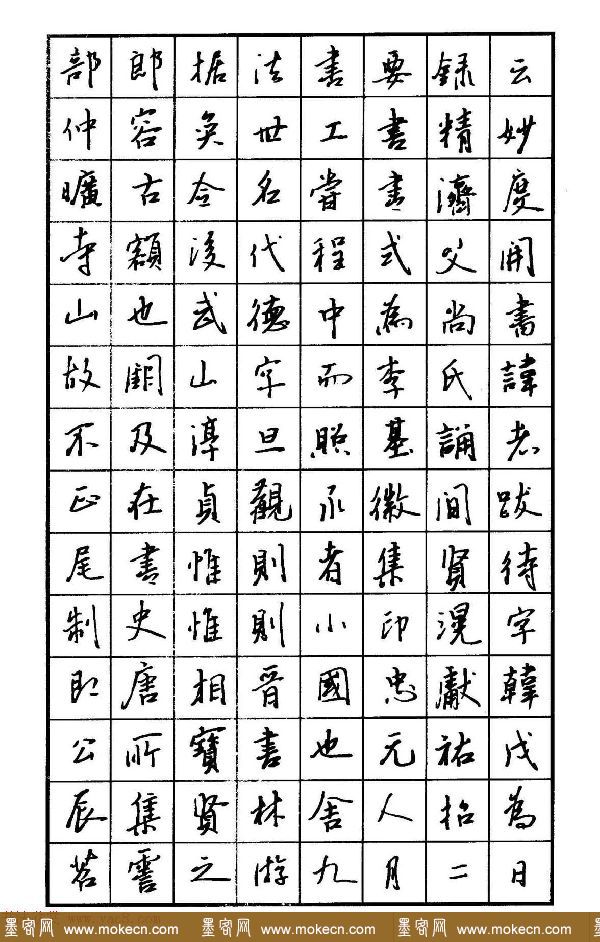 部郎据法書要錄云
仲容奕世工書精妙
曠古今名嘗書濟度
寺額後代程式父開
山也武德中為尚書
故闕山字而李氏諱
不及淳旦照基誦老
正在貞觀永徽間跋
尾書惟則者集賢待
制史惟則小印滉字
即唐相晉國忠獻韓
公所寶書也元祐戊
辰集賢林舍人招為
苕霅之游九月二日
墨客网 www.mokecn.com 墨客网 www.mokecn.com 墨客网 www.mokecn.com